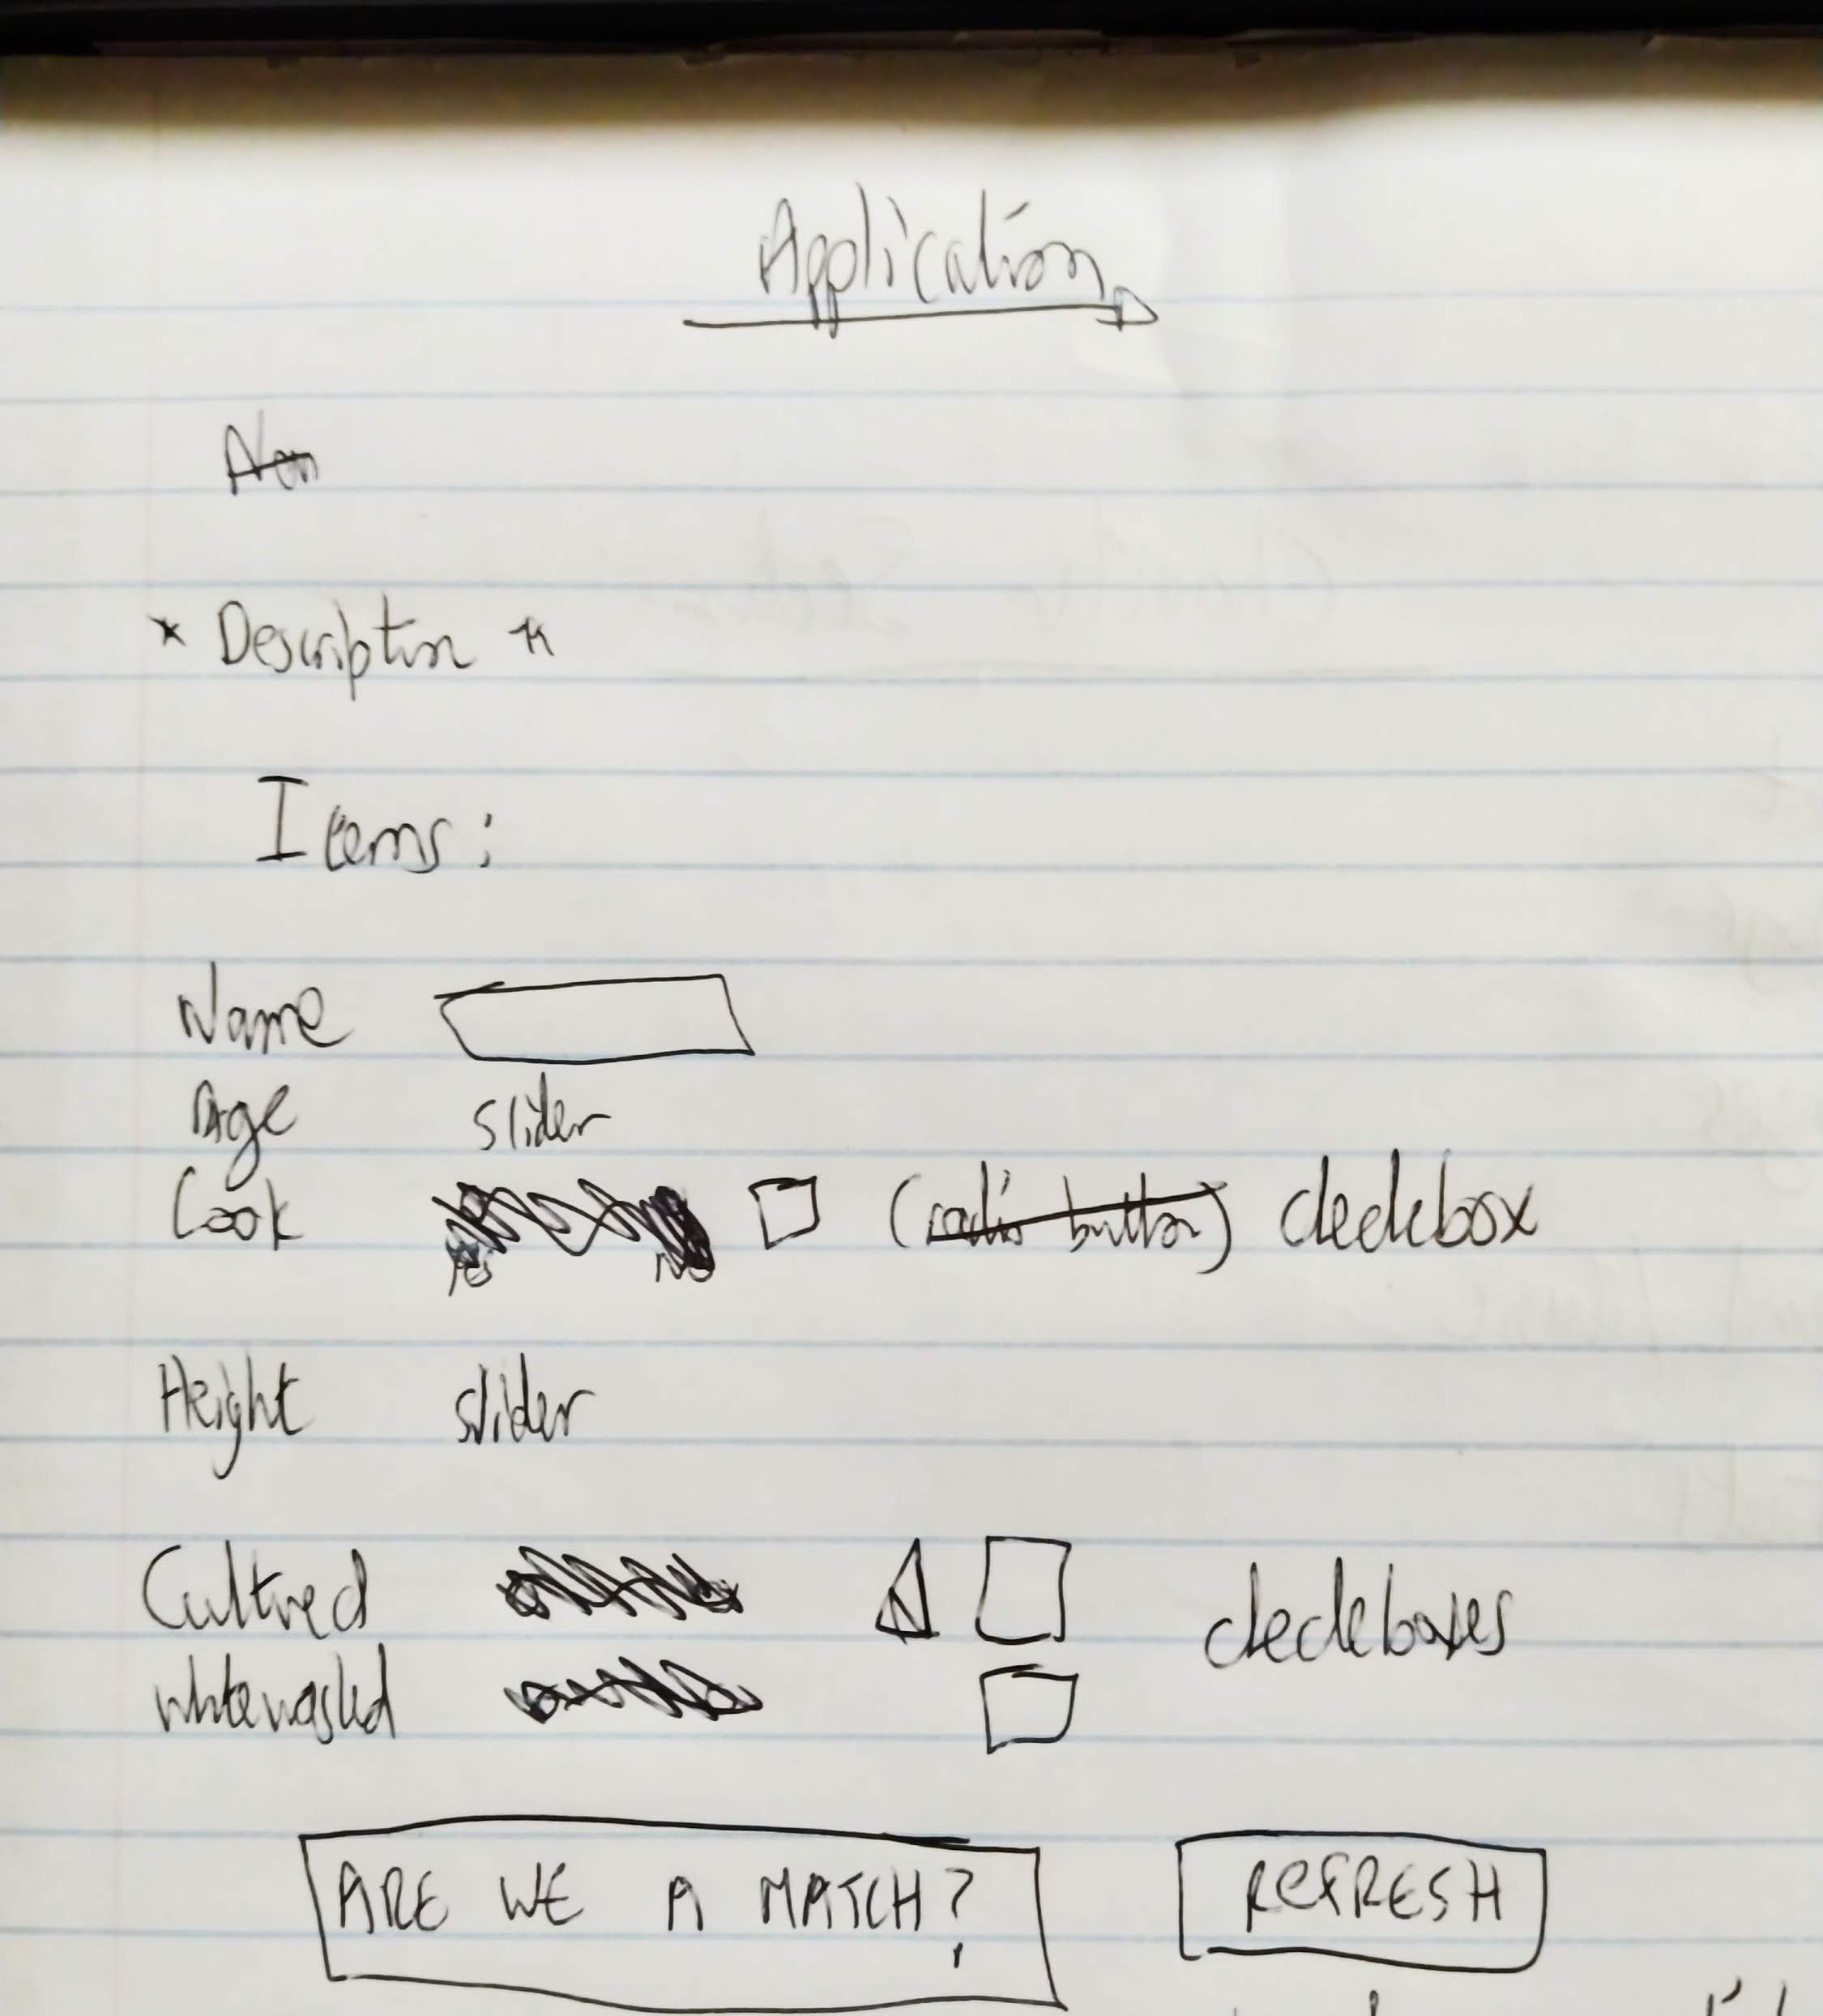 Application
* Description *
Items:
Name
Age slider
Cook Yes No (radio button) checkbox
Height slider
Cultured checkboxes
whitewashed
ARE WE A MATCH? REFRESH